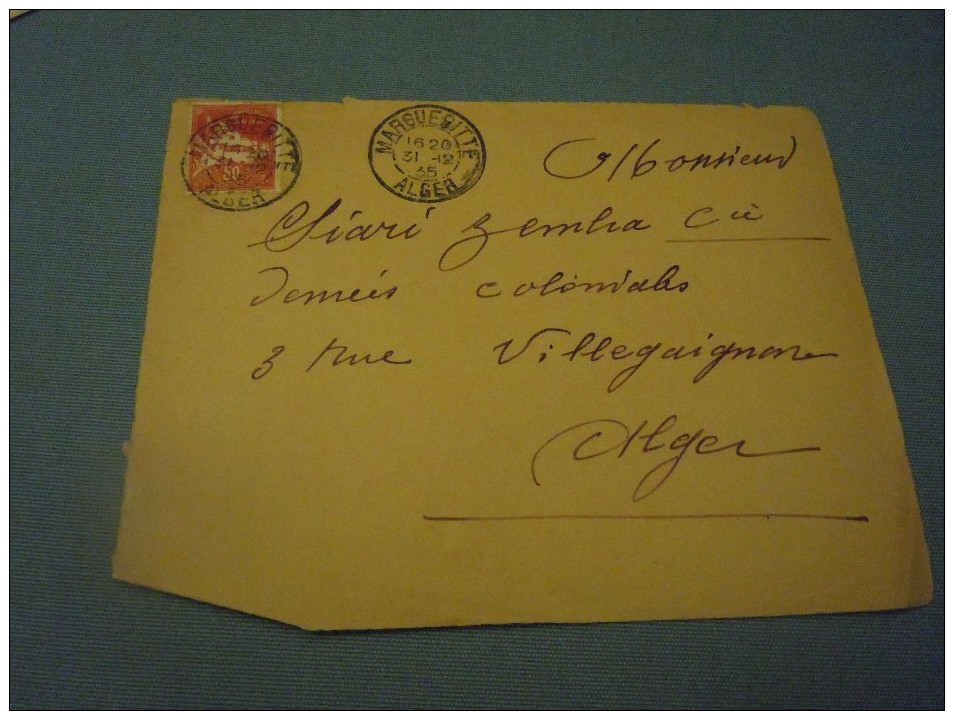 MARGUERITTE
ALGER
50
MARGUERITTE
16 20
31 -12
35
ALGER
Monsieur
Siari Zemha Cie
Denreés coloniales
3 Rue Villegaignon
Alger